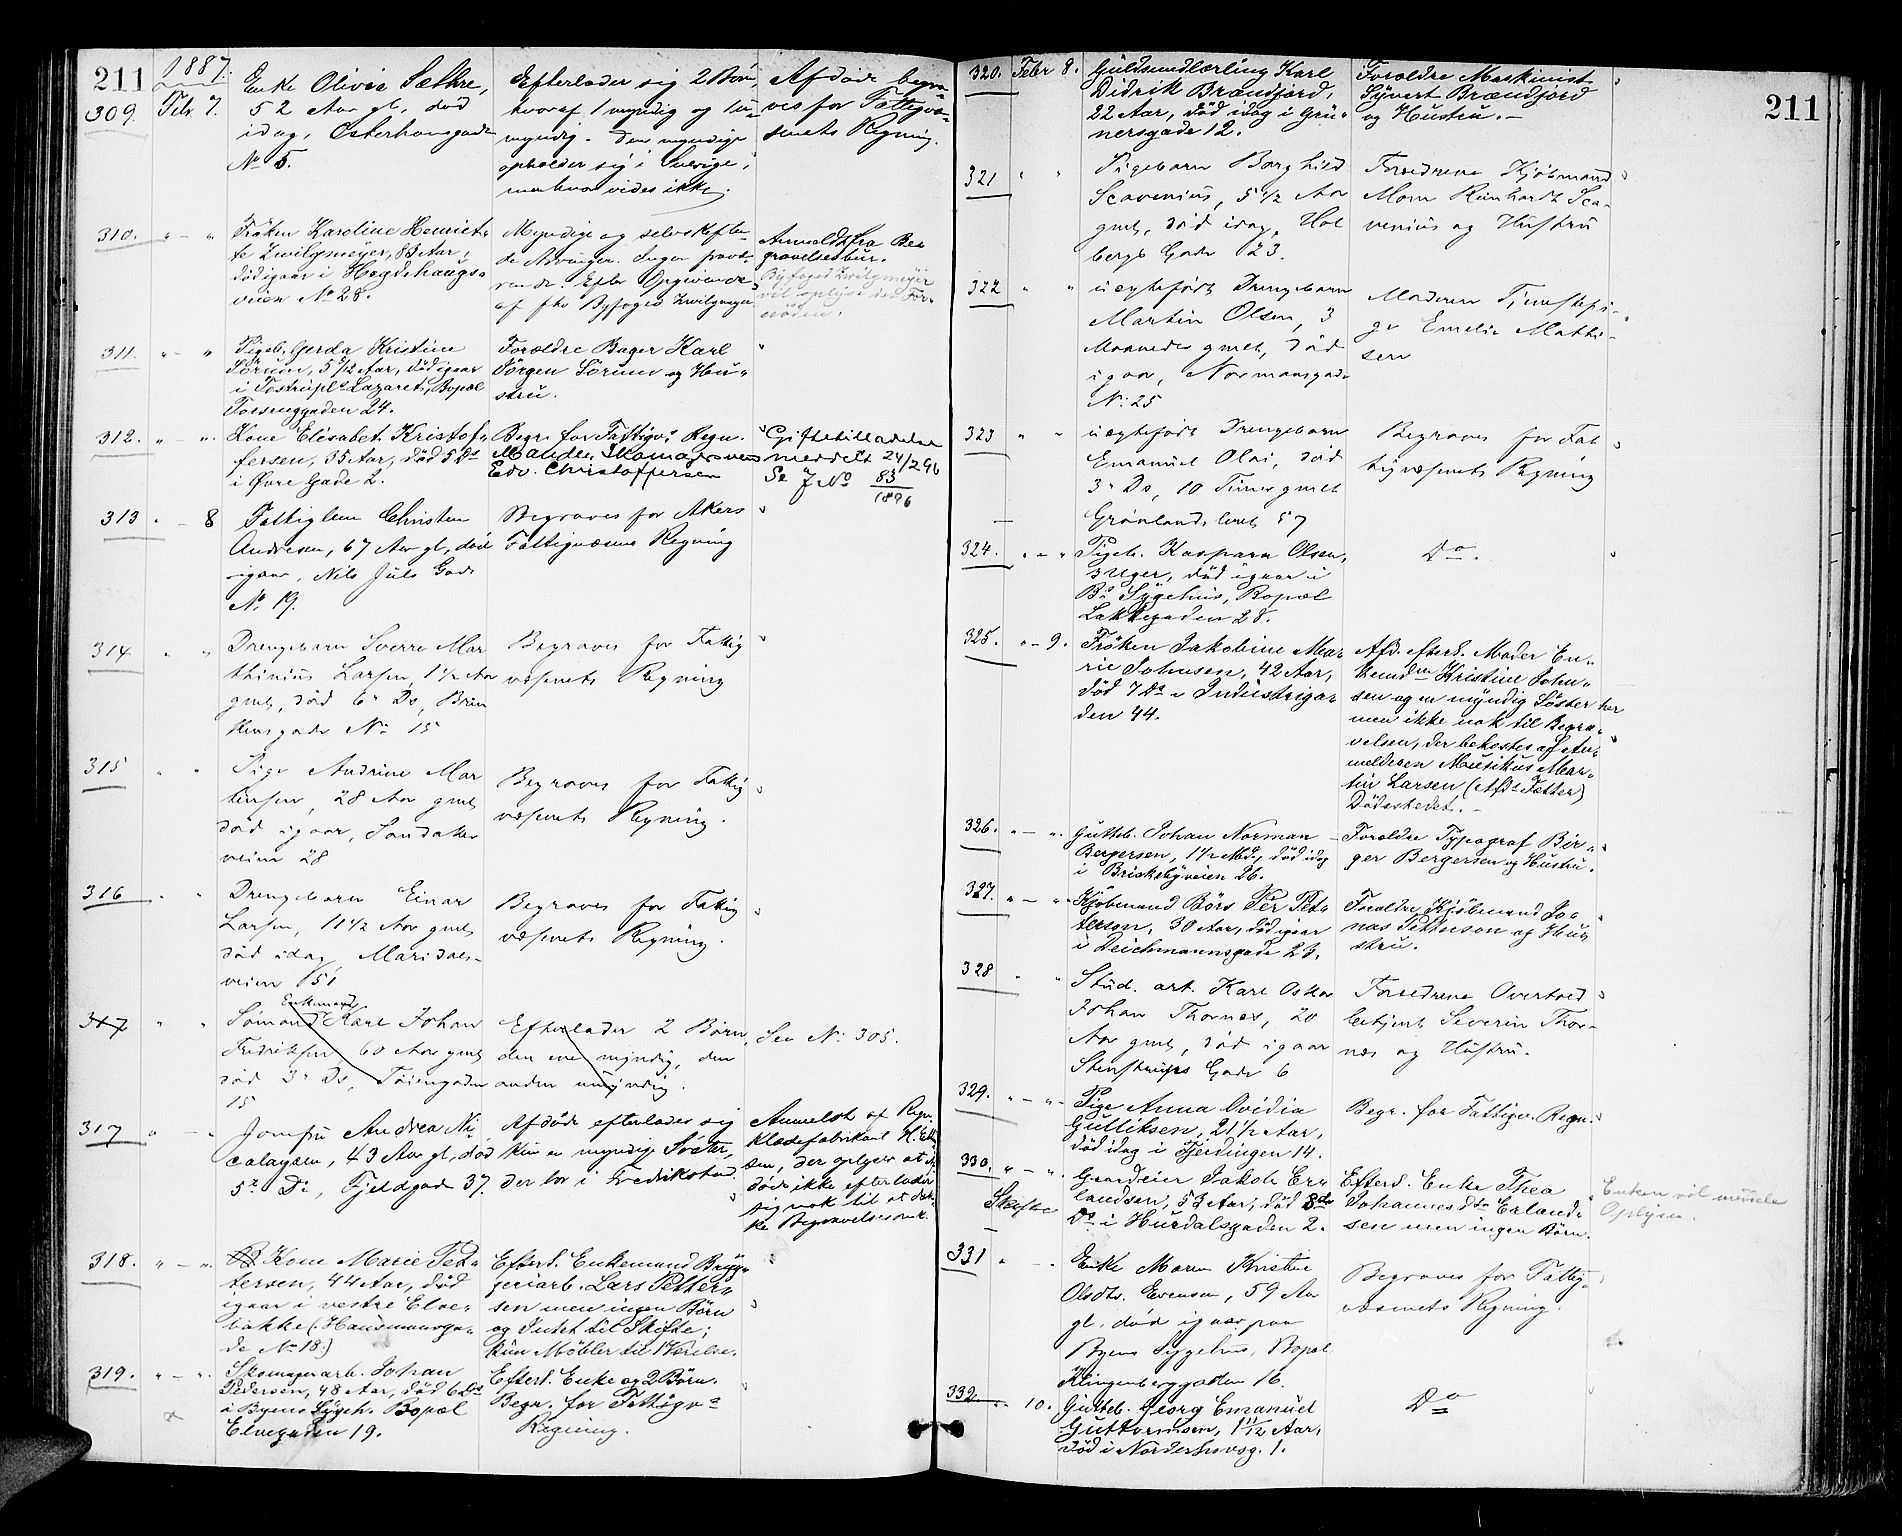 211
1887.
309. Febr. 7. Enke Olivia Sæthre,
52 Aar gl, død
idag, Osterhausgade
No 5.
Efterlader sig 2 Børn,
hvoraf 1 myndig og 1 u-
myndig. Den myndige
opholder sig i Sverige,
men hvor vides ikke.
Afdøde begra-
ves for Fattigvæ-
senets Regning.
310. " - " Frøken Karoline Henriet-
te Zwilgmeyer, 83 Aar,
død igaar i Hegdehaugs-
veien No 28.
Myndige og selvskiftende
Arvinger. Ingen
Efter Opgivende
af fhv. Byfoged Zwilgmeyer
Anmeldt fra Be-
gravelsesbur.
Byfoged Zwilgmeyer
vil oplyse det For-
nødne.
311. " - " Pigeb. Gerda Kristine
Sörum, 5 1/2 Aar, død igaar
i Tostrupl. Lazaret, Bopæl
Torsenggaden 24.
Forældre Bager Karl
Jörgen Sörum og Hu-
stru.
"
312. " - " Kone Elisabet Kristof-
fersen, 35 Aar, død 5 Ds
i Øvre Gade 2.
Begr. for Fattigv. Regn.
Manden Skomagersvend
Edv. Christoffersen
Giftetilladelse
meddelt 24/2 96
Se J No 83
1896
313 " - 8 Fattiglem Christen
Andresen, 67 Aar gl, død
igaar, Nils Juls Gade
No 19.
Begraves for Akers
Fattigvæsens Regning
314 " " Drengebarn Sverre Mar
thinius Larsen, 1 1/2 Aar
gml, død 6' Ds, Bren
nersgade No 15
Begraves for Fattig
væsenets Regning
315 " " Pige Andrine Mar
tinsen, 28 Aar gml
død igaar, Sandaker
veien 28
Begraves for Fattig
væsenets Regning.
316 " " Drengebarn Einar
Larsen, 11 1/2 Aar gml
død idag, Maridals-
veien 151
Begraves for Fattig
væsenets Regning.
317 " " Enkemand
Sømand Karl Johan
Fredriksen 60 Aar gml
død 3' Ds, Tøiengaden
15
Efterlader 2 Børn,
den ene myndig, den
anden umyndig.
See No 305.
317 " - " Jomfru Andrea Ni-
colaysen, 43 Aar gl, død
5te Ds, Fjeldgad 37.
Afdøde efterlader sig
kun en myndig Søster,
der bor i Fredrikstad.
Anmeldt af Regn
klædefabrikant H.
sen, der oplyser at Af-
døde ikke efterlader
sig nok til at dæk-
ke Begravelsesomk.
318. " - " Kone Marie Pet-
tersen, 44 Aar, død
igaar i vestre Elve-
bakke (Hausmannsga-
de No 18.)
Efterl. Enkemand Bryg-
geriarb. Lars Petter-
sen men ingen Börn
og Intet til Skifte;
kun Møbler til 1 Værelse.
319. " - " Skomagerarb. Johan
Pedersen, 48 Aar, død 6 Ds
i Byens Sygeh. Bopæl
Elvegaden 19.
Efterl. Enke og 2 Börn.
Begr. for Fattigv.
Regning.
211
320. Febr 8. Guldsmedlærling Karl
Didrik Brændfjord,
22 Aar, død idag i Grü-
nersgade 12.
Forældre Maskinist
Syvert Brændfjord
og Hustru. -
321 " " Pigebarn Borghild
Scavenius, 5 1/2 Aar
gml, død idag, Hol
bergs Gade 23.
Forældrene Kjøbmand
Morn Reinhardt Sca-
venius og Hustru
322 " " uegtefødt Drengebarn
Martin Olsen, 3
Maaneder gmlt, død
igaar, Normansgade
No 25
Moderen Tjenestepi-
ge Emelie Mathi-
sen
323 " " uegtefødt Drengebarn
Emanuel Olai, død
3' Ds, 10 Timer gmlt
Grønlandsleret 57
Begraves for Fat
tigvæsenets Regning
324. " - " Pigeb. Kaspara Olsen,
3 Uger, död igaar i
Bs Sygehus, Bopæl
Lakkegaden 28.
Do.
325. " - 9. Fröken Jakobine Ma-
rie Johnsen, 42 Aar,
död 7 Ds i Industriga-
den 44.
Afd. efterl. Moder En-
kemd Kristine John-
sen og en myndig Söster her
men ikke nok til Begra-
velsen, der bekostes af An-
melderen Musikus Mar-
tin Larsen (Afd. Fætter)
Dödsstedet. -
326. " - " Gutteb. Johan Norman
Bergersen, 1 1/2 Md., död idag
i Brinksbyveien 26.
Forældre Typograf Bir-
ger Bergersen og Hustru.
327. " - " Kjöbmand Börs Per Pet-
terson, 30 Aar, död igaar
i Deichmannsgade 23.
Forældre Kjöbmand Jo-
nas Petterson og Hu-
stru.
328 " " Stud. art. Karl Oskar
Johan Thornes, 20
Aar gml, død igaar
Stenstrups Gade 6
Forældrene Overtold
betjent Severin Thor-
næs og Hustru.
329. " - " Pige Anna Ovidia
Gulliksen, 21 1/2 Aar,
død idag i Fjerdingen 14.
Begr. for Fattigv. Regn.
330. " - " Gaardeier Jakob Er-
landsen, 53 Aar, död 8de
Ds i Hurdalsgaden 2.
Skifte
Efterl. Enke Thea
Johannesdtr Erland-
sen men ingen Börn.
Enken vil
Oplysn.
331 " - Enke Maren Kristine
Olsdtr. Evensen, 59 Aar
gl, död igaar paa
Byens Sygehus, Bopæl
Klingenberggaden 16.
Begraves for Fattig-
væsenets Regning.
332 " 10. Gutteb. Georg Emanuel
Guttormsen, 1 11/12 Aar,
död i Norderhovsg. 1.
Do